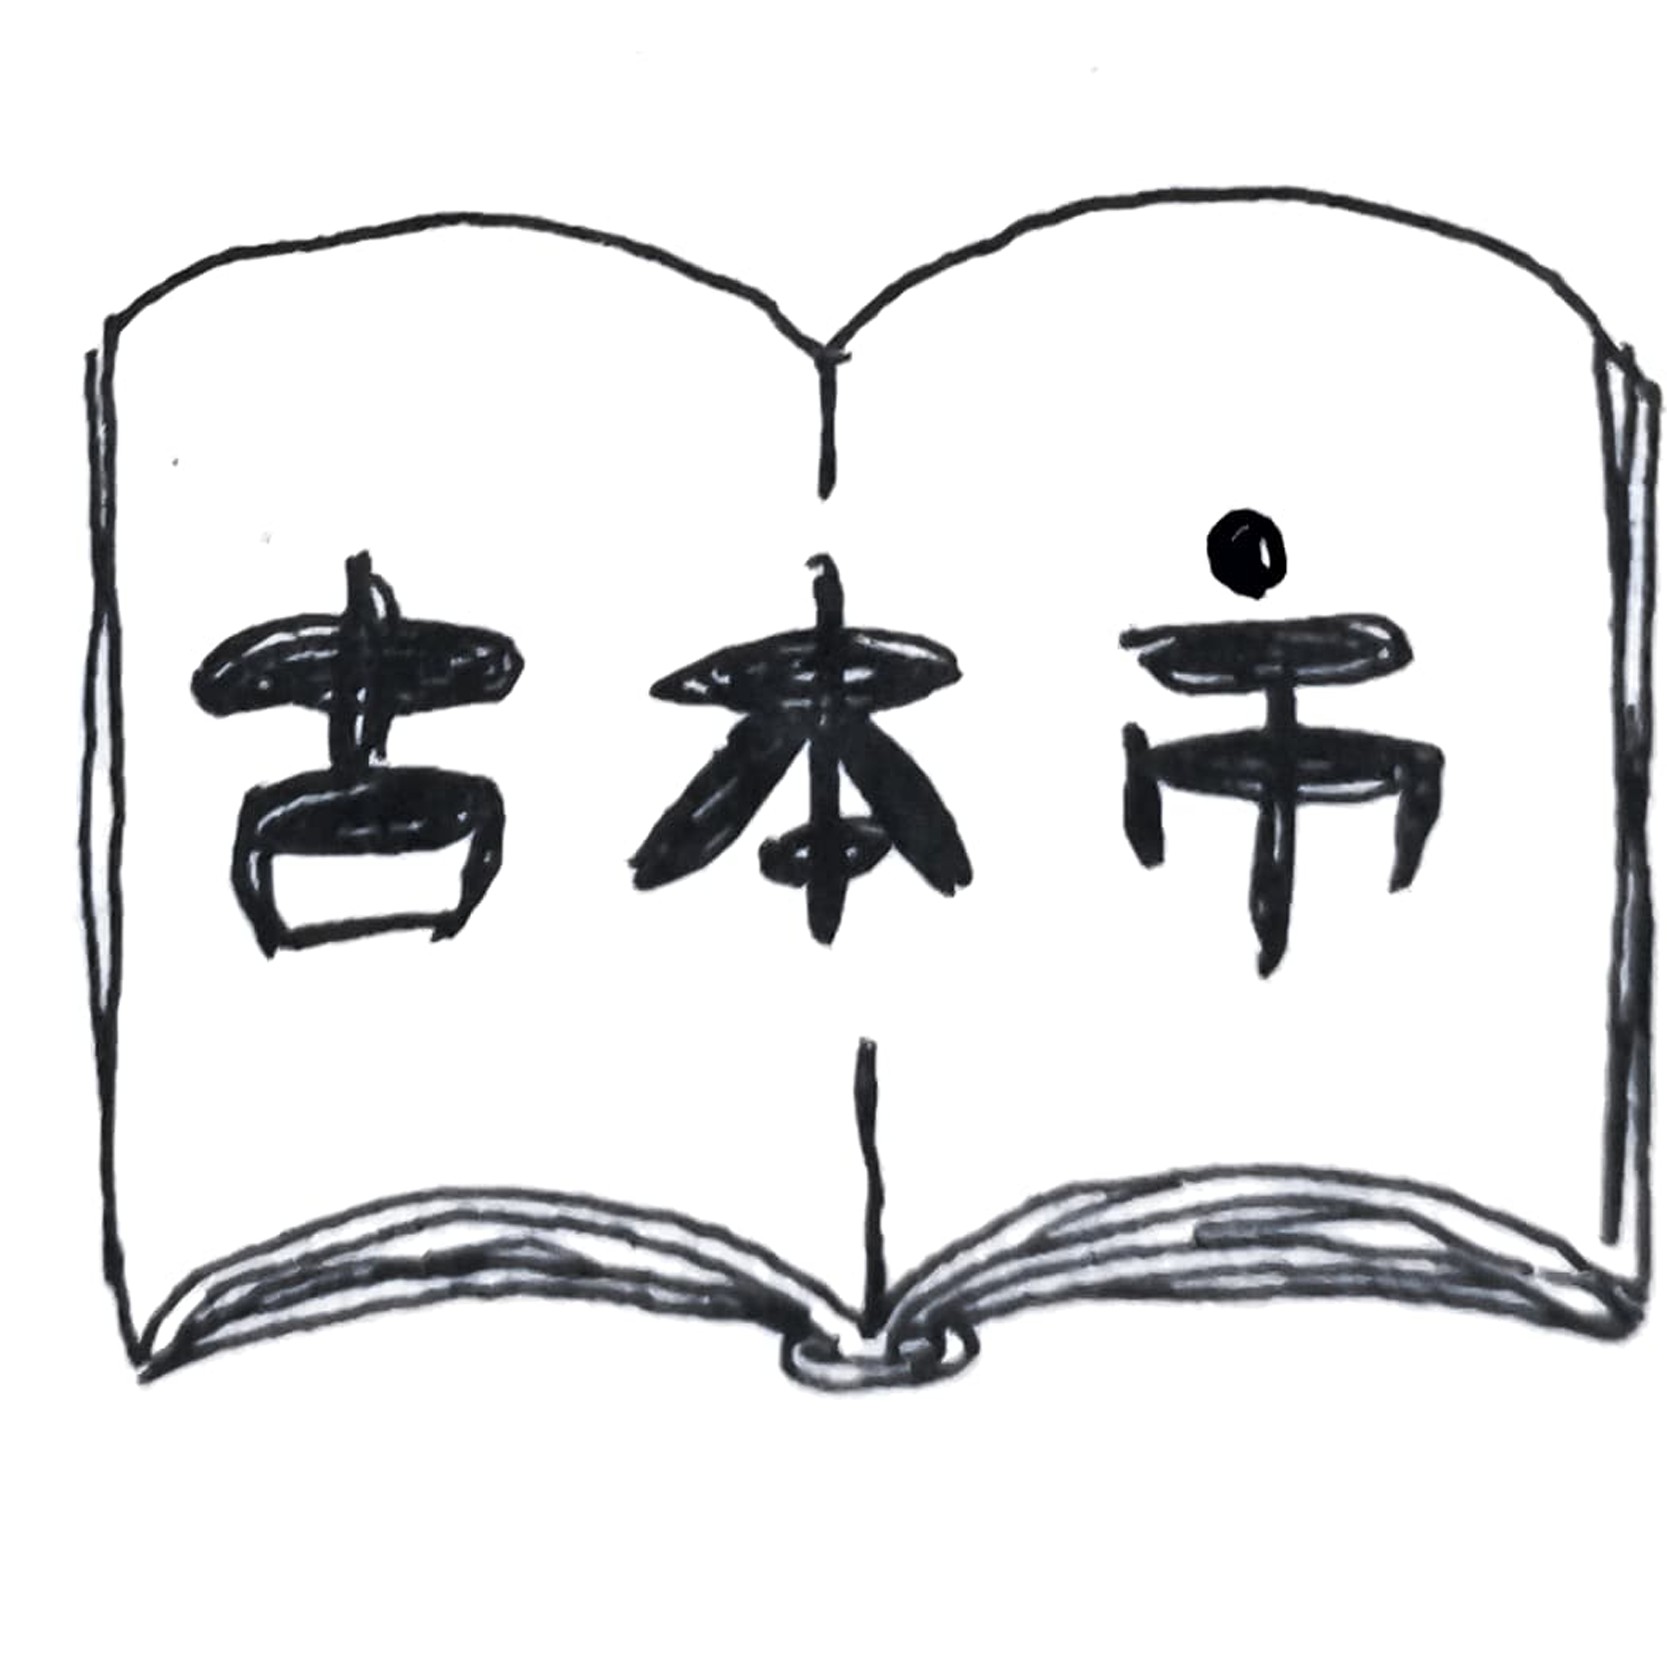 古本市